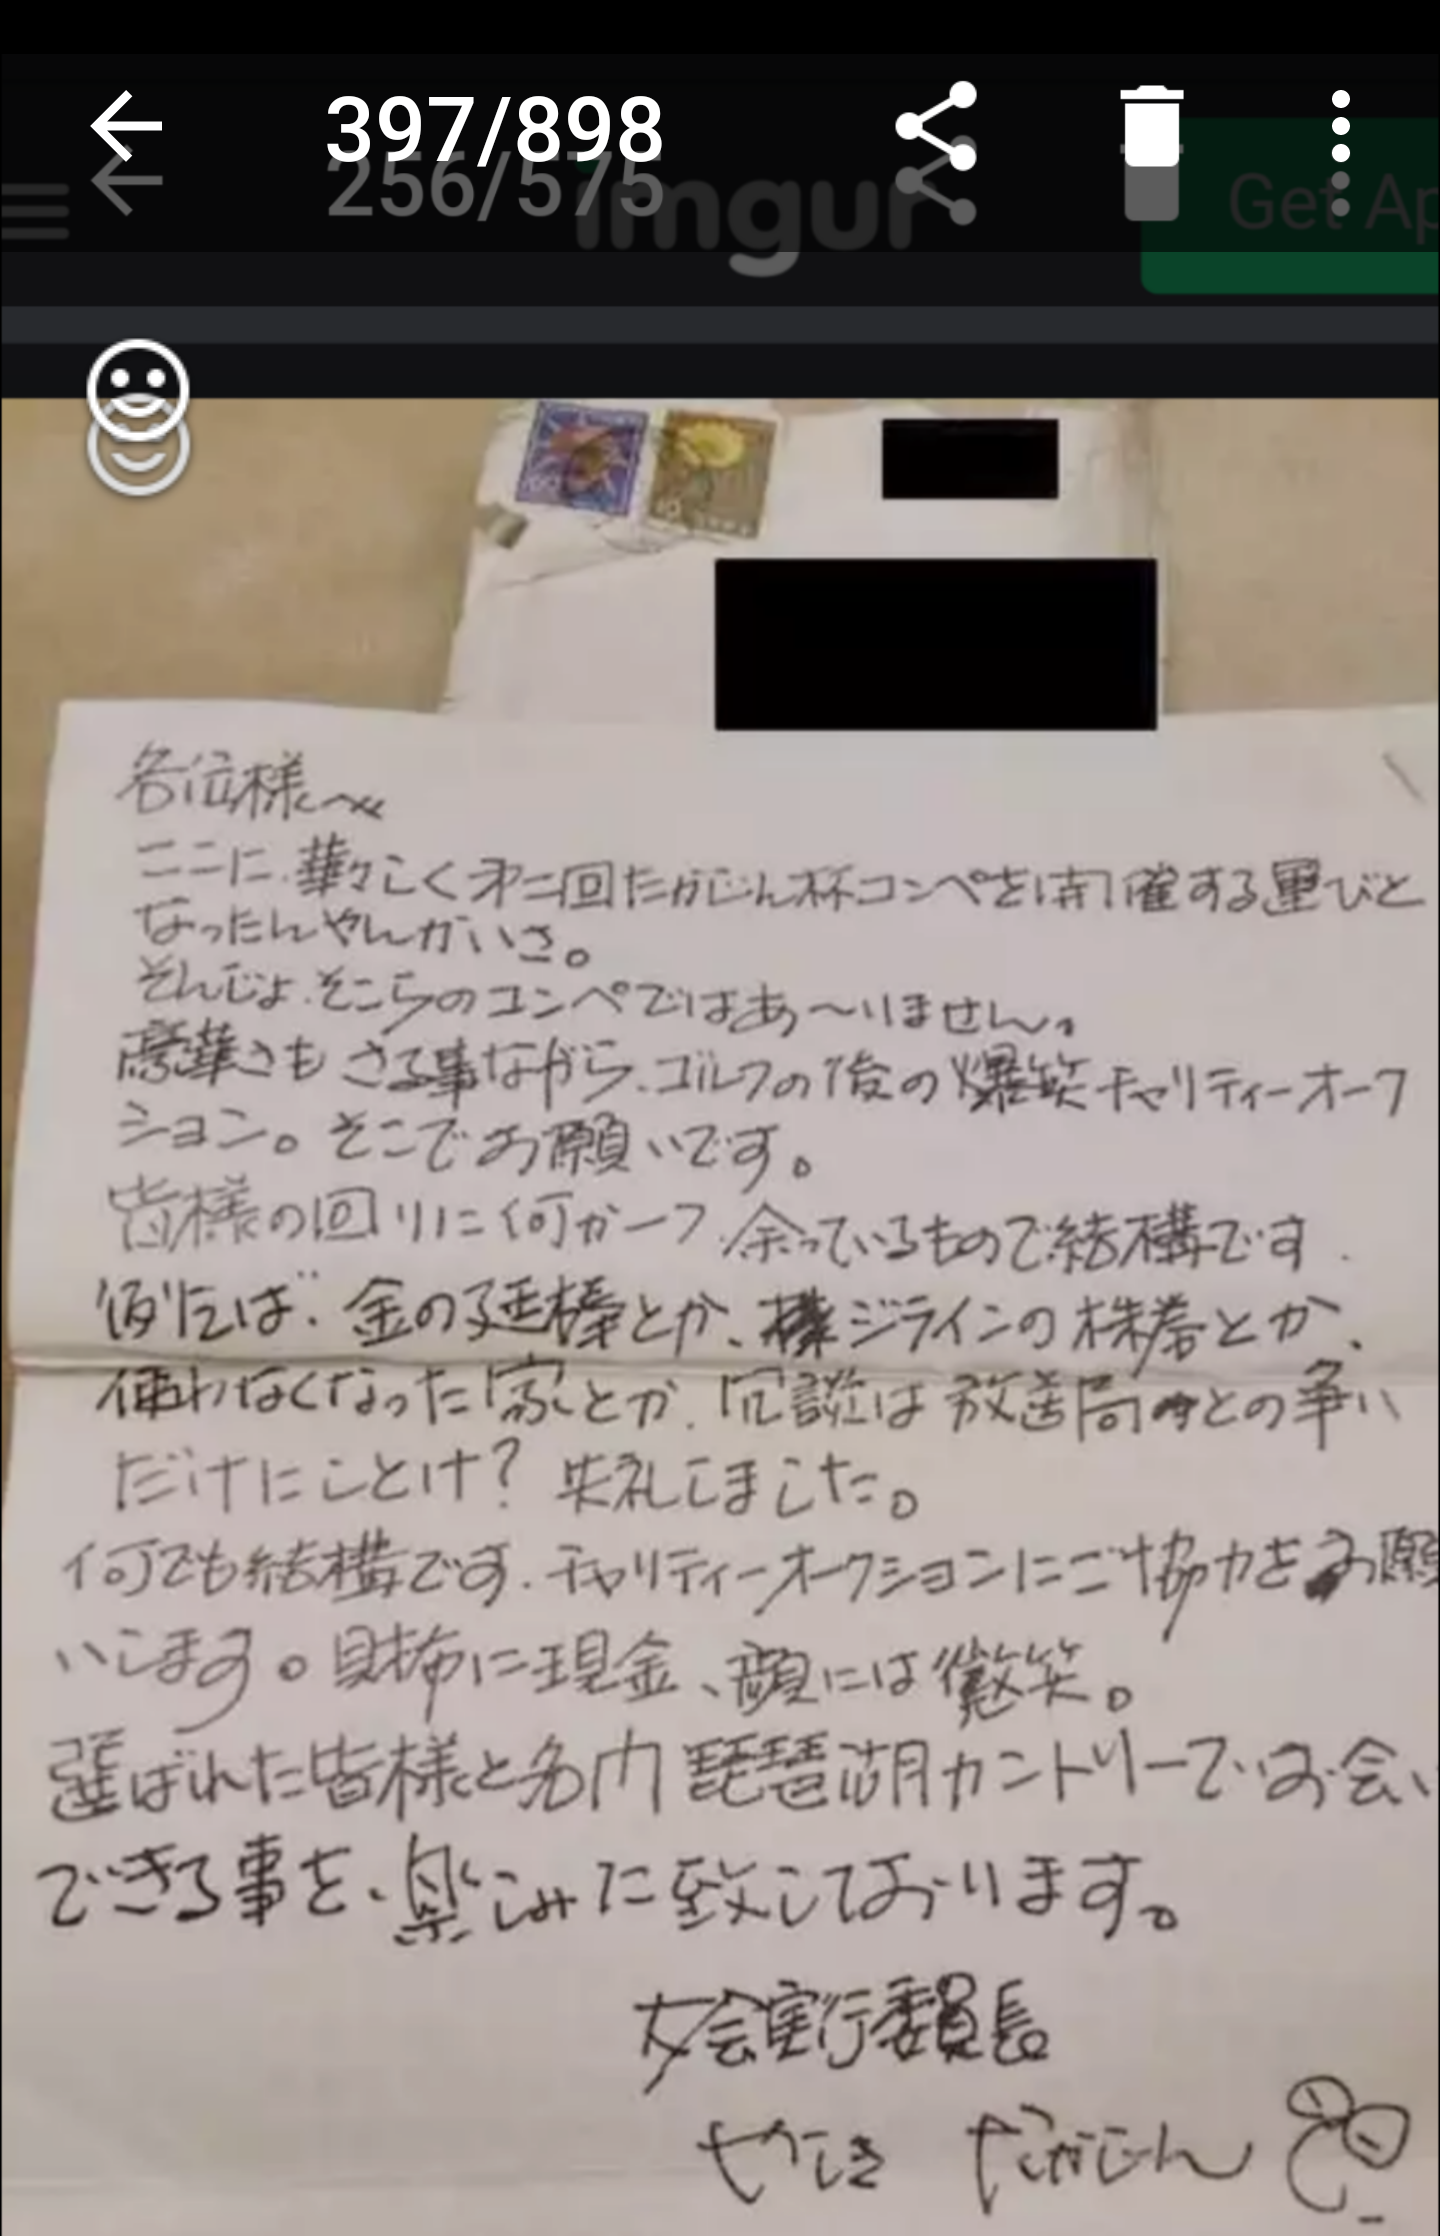 397/898
256/575
imgur
Get Ap
60
10
各位様へ
ここに、華々しく第二回たかじん杯コンペを開催する運びと
なったんやんかいさ。
そんじょそこらのコンペではあ〜りません。
豪華さもさる事ながら、ゴルフの後の爆笑チャリティーオーク
ション。そこでお願いです。
皆様の回りに何か一つ、余っているもので結構です。
例えば、金の延棒とか、ジライン の株券とか、
使わなくなった家とか、冗談は放送局との争い
だけにしとけ?失礼しました。
何でも結構です。チャリティーオークションにご協力をお願
いします。財布に現金、顔には微笑。
選ばれた皆様と名門琵琶湖カントリーでお会い
できる事を、楽しみに致しております。
大会実行委員長
やしき たかじん